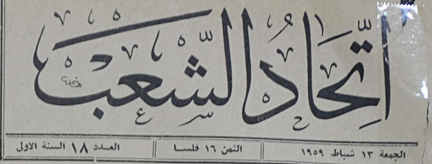 اتِّحَادُ الشَّعْب
الجمعة ١٣ شباط ١٩٥٩ الثمن ١٦ فلسا العدد ١٨ السنة الاولى